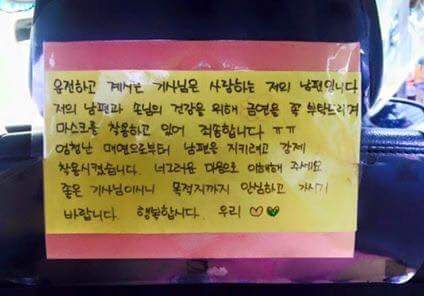 운전하고 계시는 기사님은 사랑하는 저의 남편입니다
저의 남편과 손님의 건강을 위해 금연을 꼭 부탁드리며
마스크를 착용하고 있어 죄송합니다 ㅠㅠ
엄청난 매연으로부터 남편을 지키려고 강제
착용시켰습니다. 너그러운 마음으로 이해해 주세요
좋은 기사님이시니 목적지까지 안심하고 가시기
바랍니다. 행복합니다. 우리 ♡♥